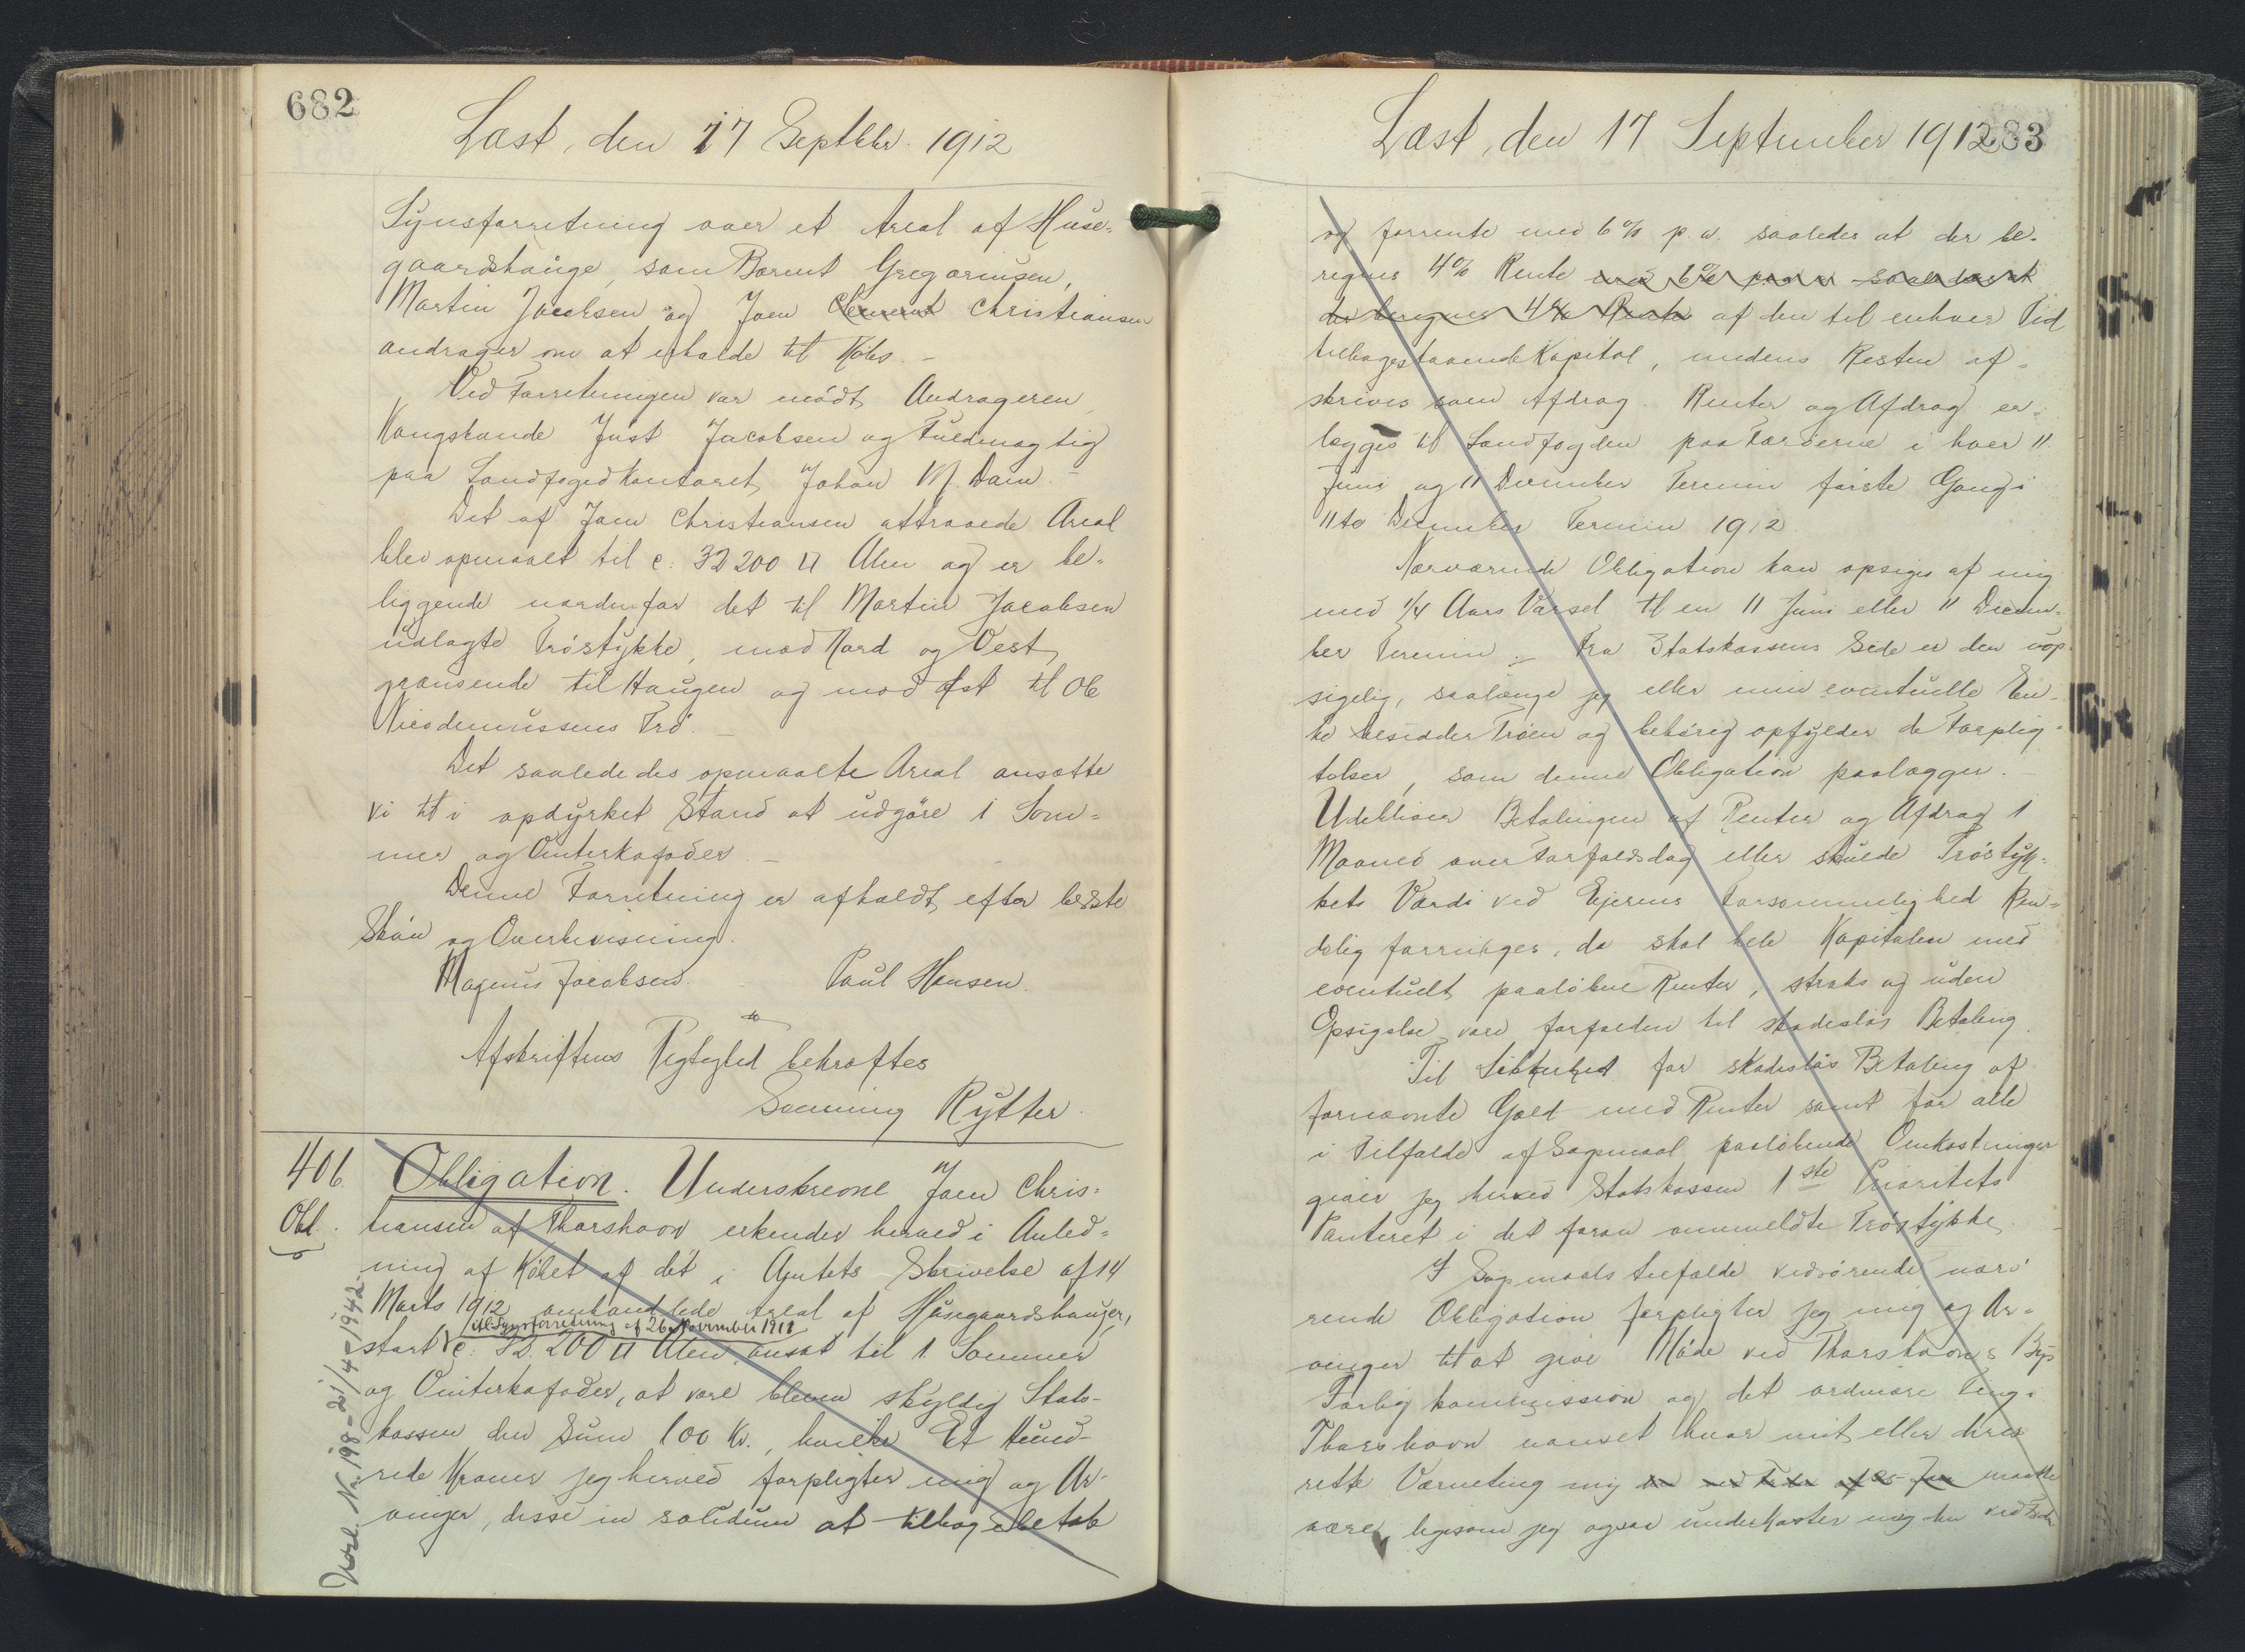 682
Læst, den 17 Septbbr. 1912
Synsforretning over et Areal af Huse-
gaardshauge, som Berent Gregoriusen,
Martin Jacobsen og Joen Clement Christiansen
andrager om at erholde til Købs. -
Ved Forretningen var mødt Andrageren,
Kongsbonde Just Jacobsen og Fuldmægtig
paa Landfogedkontoret Johan M. Dam. -
Det af Joen Christiansen attraaede Areal
blev opmaalt til c: 32200 □ Alen og er be-
liggende nordenfor det til Martin Jacobsen
udlagte Trøstykke, mod Nord og Vest
grænsende til Haugen og mod Øst til Ole
Nicodemussens Trø. -
Det saaledes opmaalte Areal ansætte
vi til i opdyrket Stand at udgøre 1 Som-
mer og Vinterkofoder. -
Denne Forretning er afholdt efter bedste
Skøn og Overbevisning.
Magnus Jacobsen. Poul Hansen.
Afskriftens Rigtighed bekræftes
Sonning Rytter.
406. Obligation. Underskrevne Joen Chris-
Obl. tiansen af Thorshavn erkender herved i Anled-
ning af Købet af det i Amtets Skrivelse af 14
Marts 1912 omhandlede Areal af Husegaardshauger,
ifl. Synsforretning af 26 November 1911
stort c: 32.200 □ Alen, ansat til 1 Sommer
og Vinterkofoder, at være bleven skyldig Stats-
kassen den Sum 100 Kr., hvilke Et Hund-
rede Kroner jeg herved forpligter mig og Ar-
vinger, disse in solidum at tilbagebetale
Vorl. No. 198 - 21/4 - 1942.
Læst, den 17 September 1912
683
og forrente med 6% p. a. saaledes at der be-
regnes 4% Rente med 6% pro a saaledes at
der beregnes 4% Rente af den til enhver Tid
tilbagestaaende Kapital, medens Resten af-
skrives som Afdrag. Renter og Afdrag er-
lægges til Landfogden paa Færøerne i hver 11.
Juni og 11 December Termin første Gang i
11te December Termin 1912.
Nærværende Obligation kan opsiges af mig
med 1/4 Aars Varsel til en 11 Juni eller 11 Decem-
ber Termin. - Fra Statskassens Side er den uop-
sigelig, saalænge jeg eller min eventuelle En-
ke besidder Trøen og behørig opfylder de Forplig-
telser, som denne Obligation paalægger.
Udebliver Betalingen af Renter og Afdrag 1
Maaned over Forfaldsdag eller skulde Trøstyk-
kets Værdi ved Ejerens Forsømmelighed Ken-
delig forringes, da skal hele Kapitalen med
eventuelt paaløbne Renter, straks og uden
Opsigelse være forfalden til skadesløs Betaling.
Til Sikkerhed for skadesløs Betaling af
fornævnte Gæld med Renter samt for alle
i Tilfælde af Søgsmaal paaløbende Omkostninger
giver jeg herved Statskassen 1ste Prioritets
Panteret i det foran ommeldte Trøstykke.
I Søgsmaalstilfælde vedrørende nærvæ-
rende Obligation forpligter jeg mig og Ar-
vinger til at give Møde ved Thorshavns Bys
Forligskommission og det ordinære Ting i
Thorshavn uanset hvor mit eller deres
rette Værneting maatte
være, ligesom jeg ogsaa underkaster mig den ved Fdr.